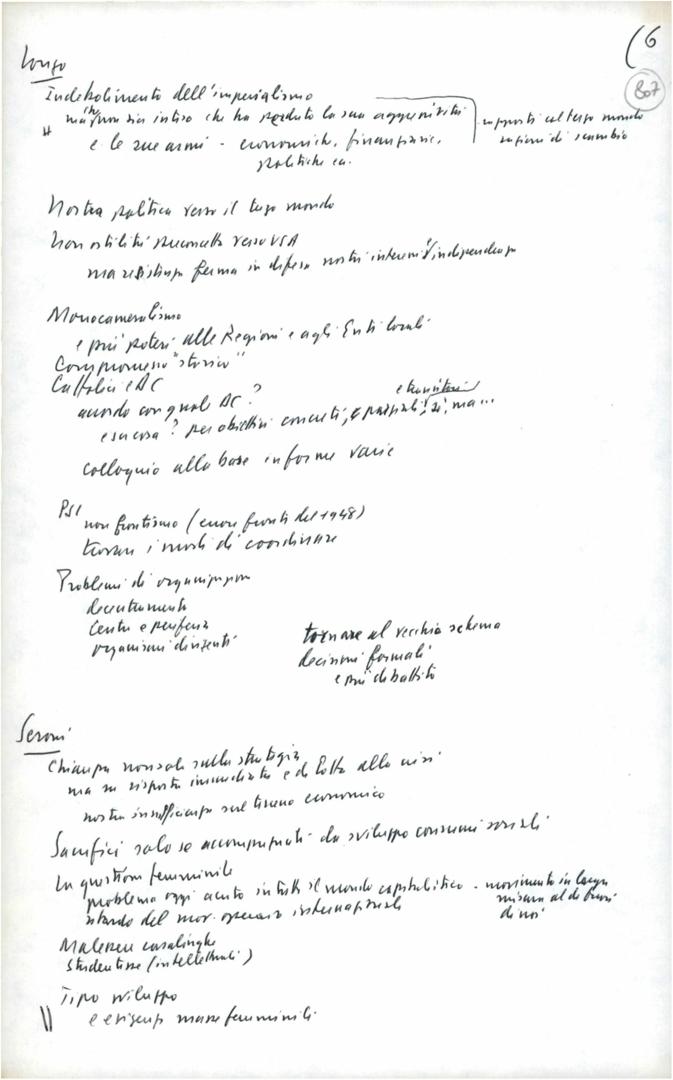 (6
807
Longo
Indebolimento dell'imperialismo
ma non sia inteso che ha perduto la sua aggressività
e le sue armi - economiche, finanziarie,
politiche ecc.
rapporti col terzo mondo
ragioni di scambio
Nostra politica verso il terzo mondo
Non ostilità preconcetta verso USA
ma resistenza ferma in difesa nostri interessi e indipendenza
Monocameralismo
e più poteri alle Regioni e agli Enti locali
Compromesso "storico"
Cattolici e DC
accordo con quale DC?
e su cosa? per obiettivi concreti, e parziali, e transitori sì, ma...
colloquio alla base in forme varie
PSI
non frontismo (errore fronti del 1948)
trovare i modi di coordinare
Problemi di organizzazione
decentramento
Centro e periferia
organismi dirigenti
tornare al vecchio schema
decisioni formali
e più dibattito
Seroni
Chiarezza non solo sulla strategia
ma su risposta immediata e di lotta alla crisi
nostra insufficienza sul terreno economico
Sacrifici solo se accompagnati da sviluppo consumi sociali
La questione femminile
problema oggi acuto in tutto il mondo capitalistico - movimento in larga
misura al di fuori
di noi
ritardo del mov. operaio internazionale
Malessere casalinghe
Studentesse (intellettuali)
Tipo sviluppo
e esigenze masse femminili